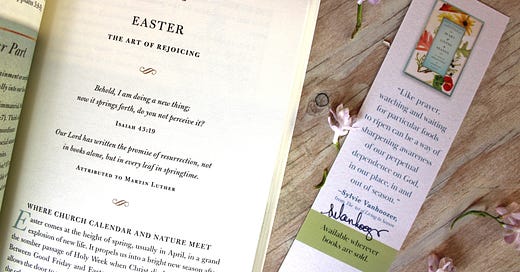 er Part
EASTER
THE ART OF REJOICING
Behold, I am doing a new thing;
now it springs forth, do you not perceive it?
ISAIAH 43:19
Our Lord has written the promise of resurrection, not
in books alone, but in every leaf in springtime.
ATTRIBUTED TO MARTIN LUTHER
WHERE CHURCH CALENDAR AND NATURE MEET
Easter comes at the height of spring, usually in April, in a grand
explosion of new life. It propels us into a bright new season after
the somber passage of Holy Week when Christ
Between Good Friday and
"Like prayer,
watching and waiting
for particular foods
to ripen can be a way of
sharpening awareness
of our perpetual
dependence on God,
in our place, in and
out of season."
—Sylvie Vanhoozer,
Available wherever
books are sold.